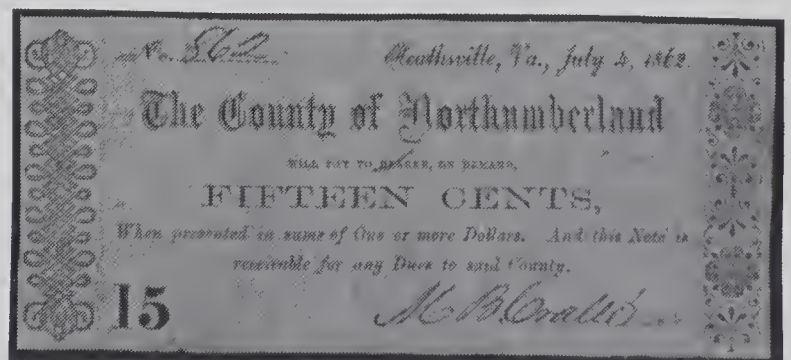 No. 562 Heathsville, Va., July 4, 1862.
The County of Northumberland
WILL PAY TO BEARER, ON DEMAND,
FIFTEEN CENTS,
When presented in sums of One or more Dollars. And this Note is
receivable for any Dues to said County.
15 M. B.